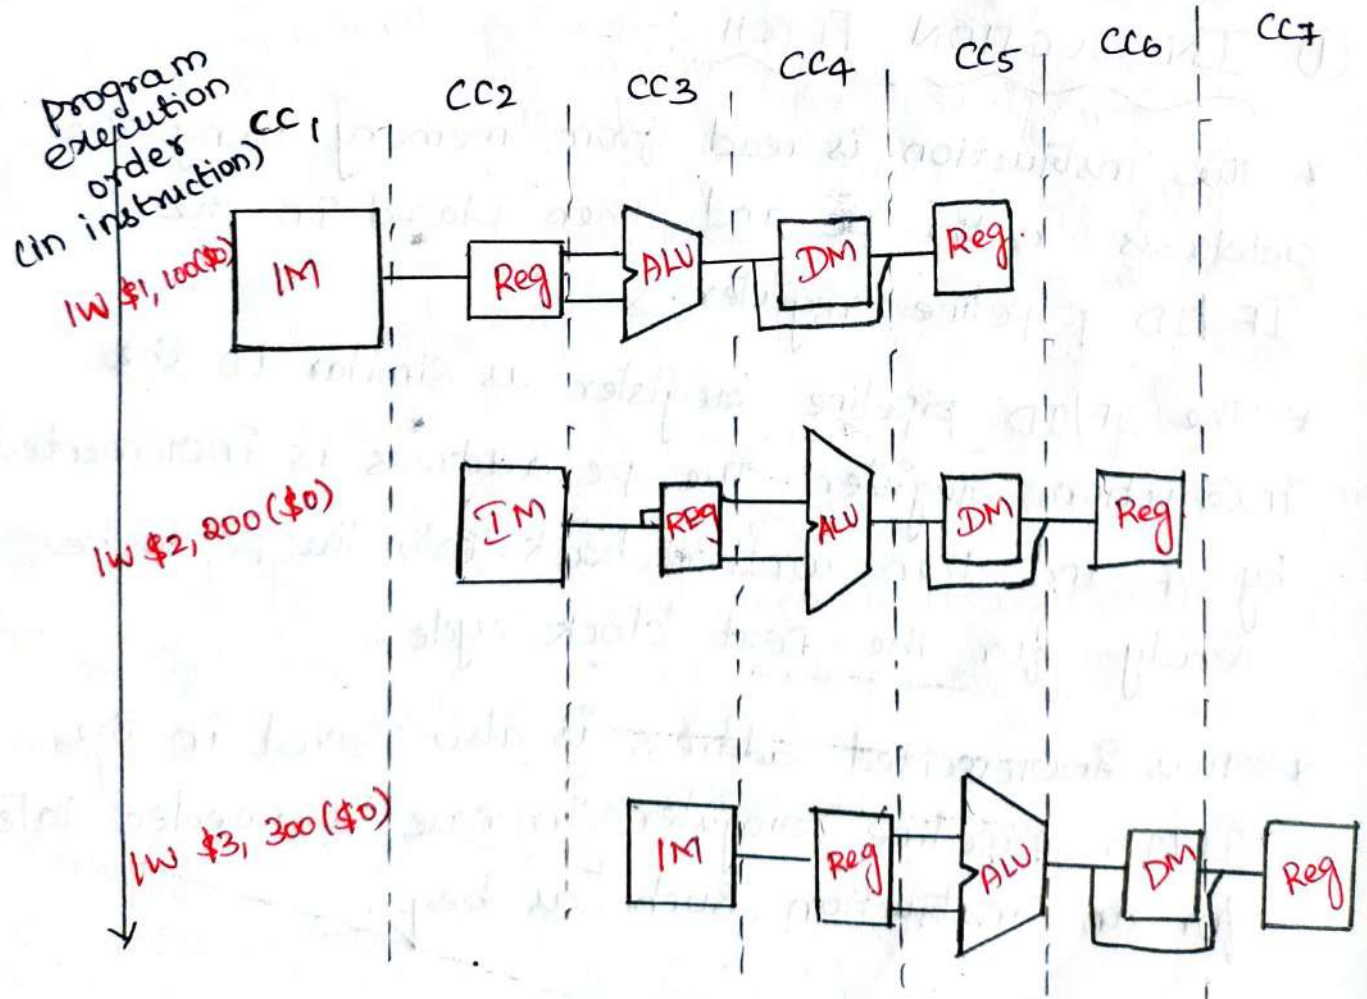 program
execution
order
(in instruction)
CC1
CC2
CC3
CC4
CC5
CC6
CC7
lw $1, 100($0)
IM
Reg
ALU
DM
Reg.
lw $2, 200($0)
IM
REg
ALU
DM
Reg
lw $3, 300($0)
IM
Reg
ALU
DM
Reg